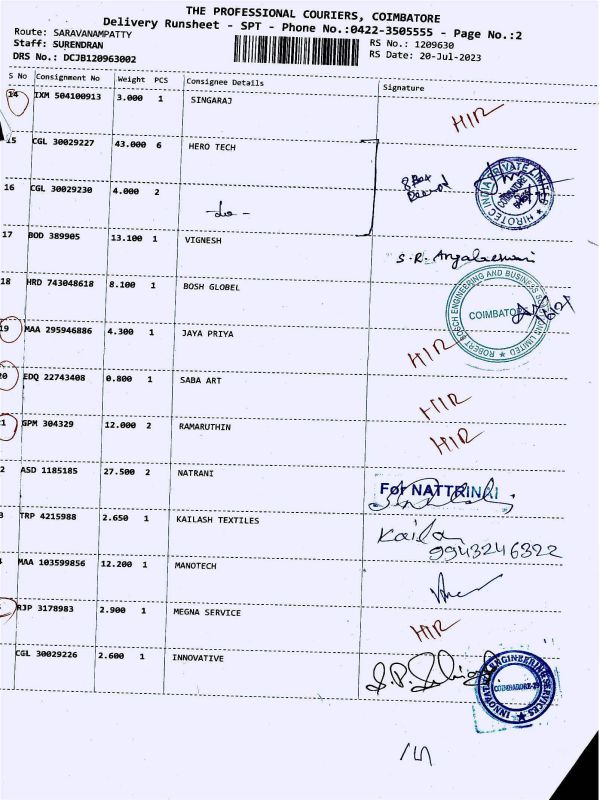 THE PROFESSIONAL COURIERS, COIMBATORE
Delivery Runsheet - SPT - Phone No.:0422-3505555 - Page No.:2
Route: SARAVANAMPATTY
Staff: SURENDRAN
RS No.: 1209630
DRS No.: DCJB120963002
RS Date: 20-Jul-2023
S No Consignment No Weight PCS Consignee Details Signature
14 IXM 504100913 3.000 1 SINGARAJ HIR
15 CGL 30029227 43.000 6 HERO TECH
8 Box
HIROTEC INDIA PRIVATE LIMITED
COIMBATORE
16 CGL 30029230 4.000 2 -do-
17 BOD 389905 13.100 1 VIGNESH
18 HRD 743048618 8.100 1 BOSH GLOBEL
ROBERT BOSCH ENGINEERING AND BUSINESS SOLUTIONS LIMITED
COIMBATORE
19 MAA 295946886 4.300 1 JAYA PRIYA HIR
20 EDQ 22743408 0.800 1 SABA ART HIR
1 GPM 304329 12.000 2 RAMARUTHIN HIR
2 ASD 1185185 27.500 2 NATRANI For NATTRINAI
3 TRP 4215988 2.650 1 KAILASH TEXTILES
9943246322
MAA 103599856 12.200 1 MANOTECH
RJP 3178983 2.900 1 MEGNA SERVICE HIR
CGL 30029226 2.600 1 INNOVATIVE
INNOVATIVE ENGINEERING SERVICES